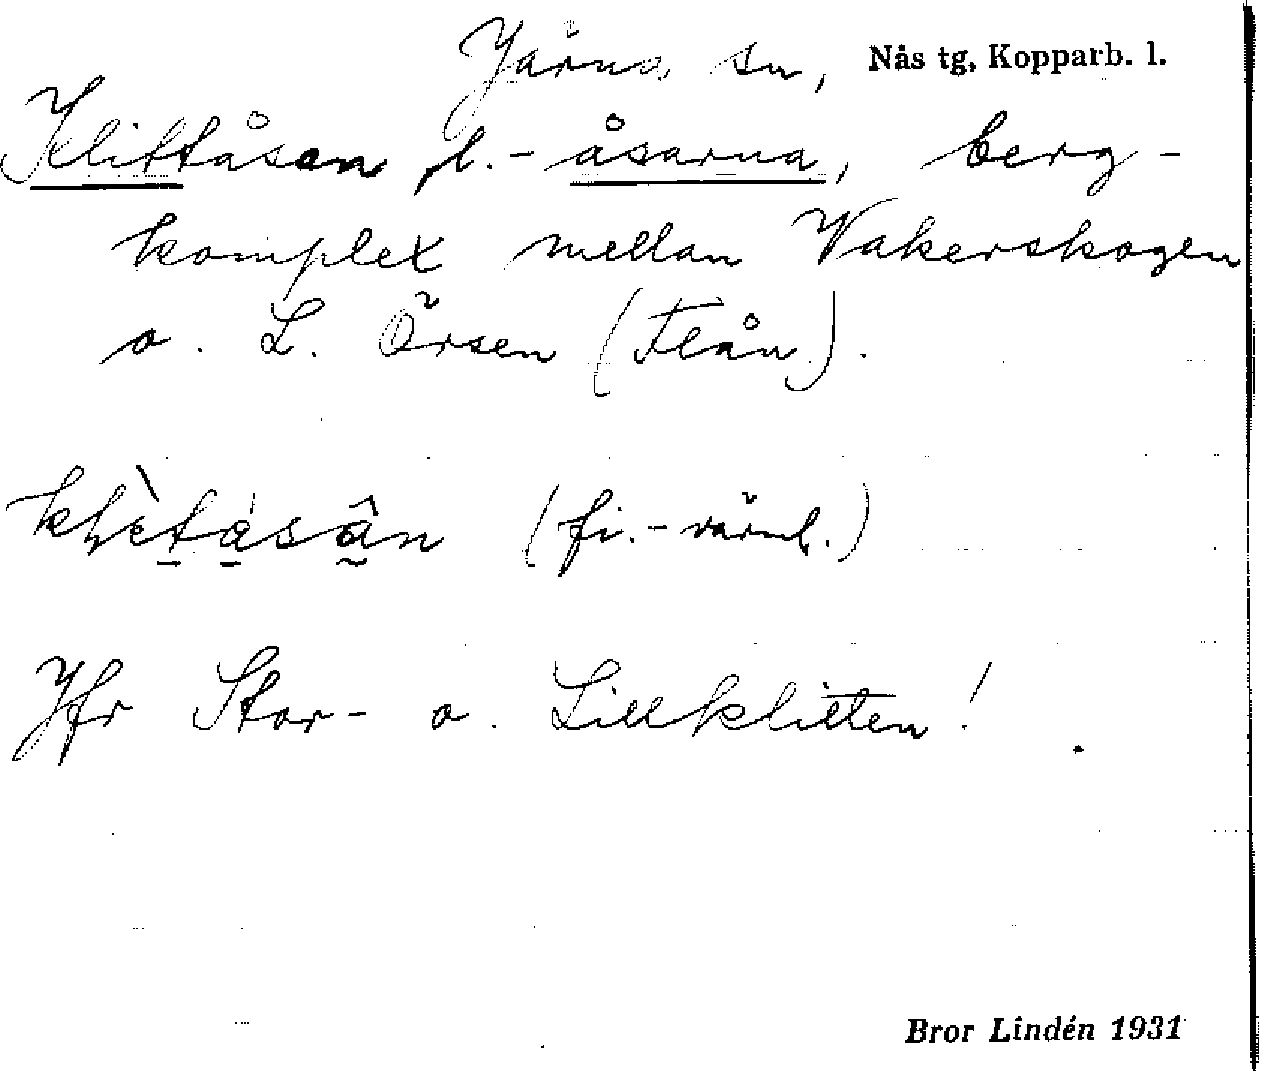 Järna sn, Nås tg, Kopparb. l.
Klittåsen pl. -åsarna, berg-
komplex mellan Vakerskogen
o. L. Örsen (Flån).
(fi.-värml.)
Jfr Stor- o. Lillklitten!
Bror Lindén 1931